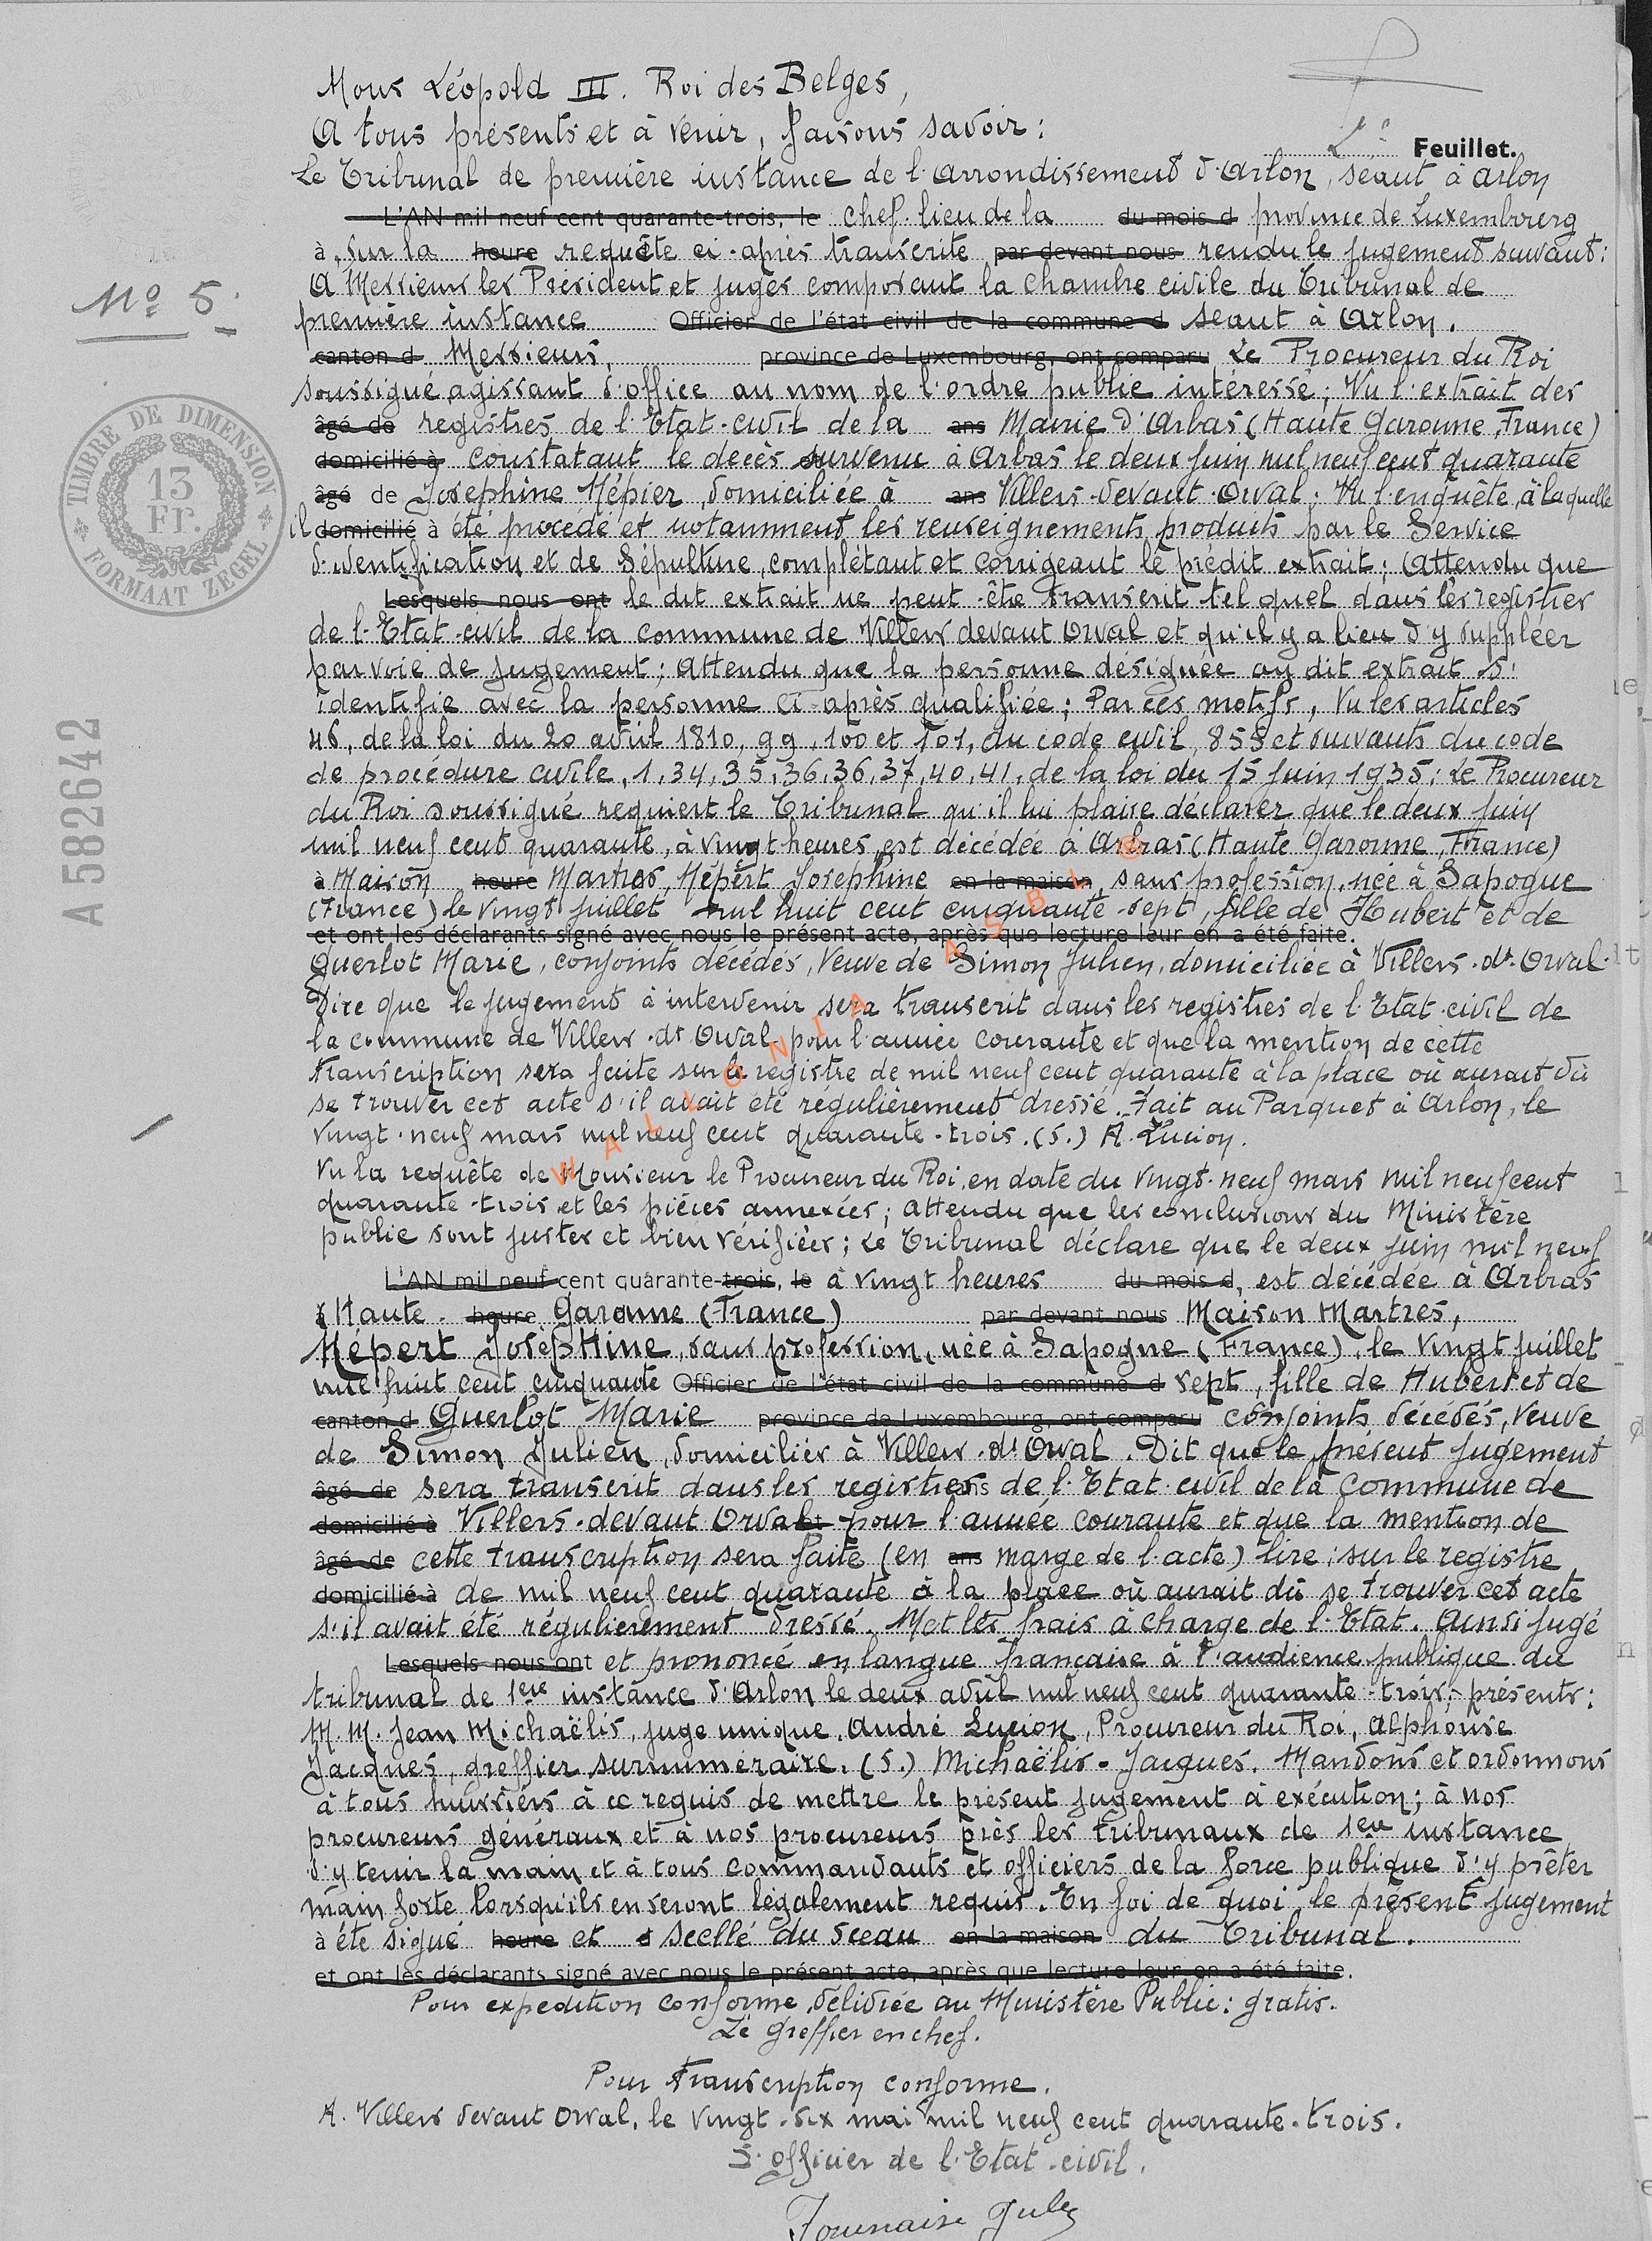 Nous Léopold III. Roi des Belges,
A tous présents et à venir, faisons savoir:
2e Feuillet.
Le Tribunal de première instance de l'Arrondissement d'Arlon, séant à Arlon
L'AN mil neuf cent quarante-trois, le chef-lieu de la du mois d province de Luxembourg
à, sur la heure requête ci-après transcrite par devant nous rendu le jugement suivant:
A Messieurs les Président et juges composant la chambre civile du Tribunal de
No 5.
première instance Officier de l'état civil de la commune d séant à Arlon.
canton d Messieurs, province de Luxembourg, ont comparu Le Procureur du Roi
soussigné agissant d'office au nom de l'ordre public intéressé; Vu l'extrait des
âgé de registres de l'Etat-civil de la ans Mairie d'Arbas (Haute Garonne, France)
domicilié à constatant le décès survenu à Arbas le deux juin mil neuf cent quarante
âgé de Joséphine Népier, domiciliée à ans Villers-devant-Orval; Vu l'enquête à laquelle
il domicilié à été procédé et notamment les renseignements produits par le Service
d'identification et de Sépulture, complétant et corrigeant le prédit extrait; Attendu que
TIMBRE DE DIMENSION
13 Fr.
FORMAAT ZEGEL
Lesquels nous ont le dit extrait ne peut être transcrit tel quel dans les registres
de l'Etat-civil de la commune de Villers devant Orval et qu'il y a lieu d'y suppléer
par voie de jugement; Attendu que la personne désignée au dit extrait s'
identifie avec la personne ci-après qualifiée; Par ces motifs, Vu les articles
46, de la loi du 20 avril 1810, 99, 100 et 101, du code civil, 855 et suivants du code
de procédure civile, 1, 34, 35, 36, 36, 37, 40, 41, de la loi du 15 juin 1935; Le Procureur
du Roi soussigné requiert le Tribunal qu'il lui plaise déclarer que le deux juin
mil neuf cent quarante, à vingt heures, est décédée à Arbas (Haute Garonne, France)
A 582642
à Maison heure Martres, Népert Joséphine en la maison, sans profession, née à Sapogne
(France) le vingt juillet mil huit cent cinquante-sept, fille de Hubert et de
et ont les déclarants signé avec nous le présent acte, après que lecture leur en a été faite.
Querlot Marie, conjoints décédés, Veuve de Simon Julien, domiciliée à Villers-dt-Orval.
Dire que le jugement à intervenir sera transcrit dans les registres de l'Etat-civil de
la commune de Villers-dt Orval pour l'année courante et que la mention de cette
transcription sera faite sur le registre de mil neuf cent quarante à la place où aurait dû
se trouver cet acte s'il avait été régulièrement dressé. Fait au Parquet à Arlon, le
vingt-neuf mars mil neuf cent quarante-trois. (S.) A. Lucion.
WALLONIA ASBL ©
Vu la requête de Monsieur le Procureur du Roi, en date du vingt-neuf mars mil neuf cent
quarante-trois et les pièces annexées; Attendu que les conclusions du Ministère
public sont justes et bien vérifiées; Le Tribunal déclare que le deux juin mil neuf
L'AN mil neuf cent quarante-trois, le à vingt heures du mois d, est décédée à Arbas
à Haute- heure Garonne (France) par devant nous Maison Martres,
Népert Joséphine, sans profession, née à Sapogne (France), le vingt juillet
mil huit cent cinquante Officier de l'état civil de la commune d sept, fille de Hubert et de
canton d Querlot Marie province de Luxembourg, ont comparu conjoints décédés, Veuve
de Simon Julien, domiciliée à Villers-dt Orval. Dit que le présent jugement
âgé de sera transcrit dans les registres ans de l'Etat-civil de la Commune de
domicilié à Villers-devant Orval et pour l'année courante et que la mention de
âgé de cette transcription sera faite (en ans marge de l'acte) lire; sur le registre
domicilié à de mil neuf cent quarante à la place où aurait dû se trouver cet acte
s'il avait été régulièrement dressé. Met les frais à charge de l'Etat. Ainsi jugé
Lesquels nous ont et prononcé en langue française à l'audience publique du
tribunal de 1ère instance d'Arlon le deux avril mil neuf cent quarante-trois; présents:
M.M. Jean Michaëlis, juge unique, André Lucion, Procureur du Roi, Alphonse
Jacques, greffier surnuméraire. (S.) Michaëlis - Jacques. Mandons et ordonnons
à tous huissiers à ce requis de mettre le présent jugement à exécution; à nos
procureurs généraux et à nos procureurs près les tribunaux de 1ère instance
d'y tenir la main et à tous commandants et officiers de la force publique d'y prêter
main forte lorsqu'ils en seront légalement requis. En foi de quoi le présent jugement
à été signé heure et scellé du sceau en la maison du Tribunal.
et ont les déclarants signé avec nous le présent acte, après que lecture leur en a été faite.
Pour expédition conforme, délivrée au Ministère Public: gratis.
Le Greffier en chef.
Pour transcription conforme.
A. Villers devant Orval, le vingt-six mai mil neuf cent quarante-trois.
L'officier de l'Etat-civil.